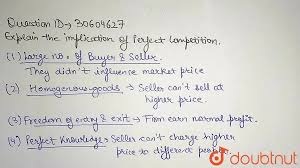 Question ID→30604627
Explain the implication of Perfect Competition.
(1) Large no. of Buyer & Seller.
They didn't influence market price
(2) Homogenous goods → Seller can't sell at
higher price.
(3) Freedom of entry & exit → Firm earn normal profit.
(4) Perfect Knowledge → Seller can't charge higher
price to different people
doubtnut